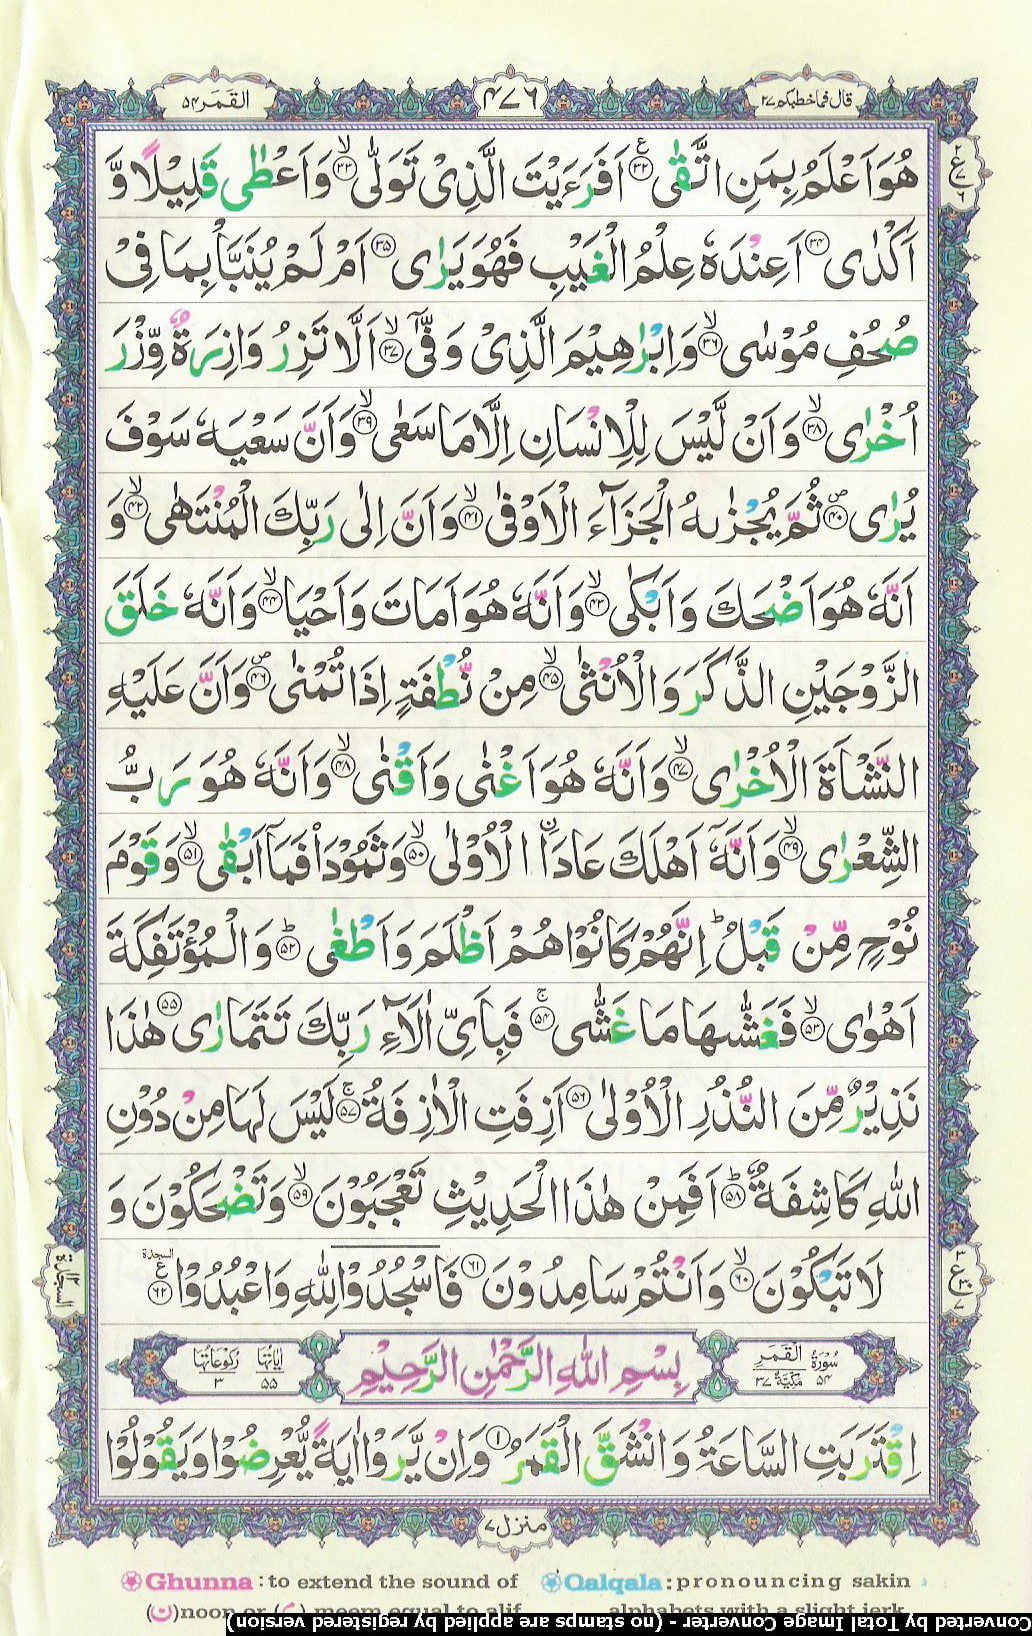 قال فما خطبكم ٢٧ ٤٧٦ القمر ٥٤
هُوَ اَعْلَمُ بِمَنِ اتَّقٰى ۝٣٢ اَفَرَءَيْتَ الَّذِىْ تَوَلّٰى ۝٣٣ وَاَعْطٰى قَلِيْلًا وَّ
اَكْدٰى ۝٣٤ اَعِنْدَهٗ عِلْمُ الْغَيْبِ فَهُوَ يَرٰى ۝٣٥ اَمْ لَمْ يُنَبَّاْ بِمَا فِىْ
صُحُفِ مُوْسٰى ۝٣٦ وَاِبْرٰهِيْمَ الَّذِىْ وَفّٰىٓ ۝٣٧ اَلَّا تَزِرُ وَازِرَةٌ وِّزْرَ
اُخْرٰى ۝٣٨ وَاَنْ لَّيْسَ لِلْاِنْسَانِ اِلَّا مَا سَعٰى ۝٣٩ وَاَنَّ سَعْيَهٗ سَوْفَ
يُرٰى ۝٤٠ ثُمَّ يُجْزٰىهُ الْجَزَآءَ الْاَوْفٰى ۝٤١ وَاَنَّ اِلٰى رَبِّكَ الْمُنْتَهٰى ۝٤٢ وَ
اَنَّهٗ هُوَ اَضْحَكَ وَاَبْكٰى ۝٤٣ وَاَنَّهٗ هُوَ اَمَاتَ وَاَحْيَا ۝٤٤ وَاَنَّهٗ خَلَقَ
الزَّوْجَيْنِ الذَّكَرَ وَالْاُنْثٰى ۝٤٥ مِنْ نُّطْفَةٍ اِذَا تُمْنٰى ۝٤٦ وَاَنَّ عَلَيْهِ
النَّشْاَةَ الْاُخْرٰى ۝٤٧ وَاَنَّهٗ هُوَ اَغْنٰى وَاَقْنٰى ۝٤٨ وَاَنَّهٗ هُوَ رَبُّ
الشِّعْرٰى ۝٤٩ وَاَنَّهٗٓ اَهْلَكَ عَادَا ۨ الْاُوْلٰى ۝٥٠ وَثَمُوْدَا۟ فَمَآ اَبْقٰى ۝٥١ وَقَوْمَ
نُوْحٍ مِّنْ قَبْلُ ؕ اِنَّهُمْ كَانُوْا هُمْ اَظْلَمَ وَاَطْغٰى ۝٥٢ وَالْمُؤْتَفِكَةَ
اَهْوٰى ۝٥٣ فَغَشّٰىهَا مَا غَشّٰى ۝٥٤ فَبِاَىِّ اٰلَآءِ رَبِّكَ تَتَمَارٰى ۝٥٥ هٰذَا
نَذِيْرٌ مِّنَ النُّذُرِ الْاُوْلٰى ۝٥٦ اَزِفَتِ الْاٰزِفَةُ ۝٥٧ لَيْسَ لَهَا مِنْ دُوْنِ
اللّٰهِ كَاشِفَةٌ ۝٥٨ اَفَمِنْ هٰذَا الْحَدِيْثِ تَعْجَبُوْنَ ۝٥٩ وَتَضْحَكُوْنَ وَ
لَا تَبْكُوْنَ ۝٦٠ وَاَنْتُمْ سَامِدُوْنَ ۝٦١ فَاسْجُدُوْا لِلّٰهِ وَاعْبُدُوْا ۝٦٢
السجدة
سُوْرَةُ الْقَمَرِ ٥٤ مَكِّيَّةٌ ٣٧ بِسْمِ اللّٰهِ الرَّحْمٰنِ الرَّحِيْمِ اٰيَاتُهَا ٥٥ رُكُوْعَاتُهَا ٣
اِقْتَرَبَتِ السَّاعَةُ وَانْشَقَّ الْقَمَرُ ۝١ وَاِنْ يَّرَوْا اٰيَةً يُّعْرِضُوْا وَيَقُوْلُوْا
منزل ٧
Ghunna : to extend the sound of Qalqala : pronouncing sakin
(ن)noon or (م) meem equal to alif alphabets with a slight jerk
Converted by Total Image Converter - (no stamps are applied by registered version)